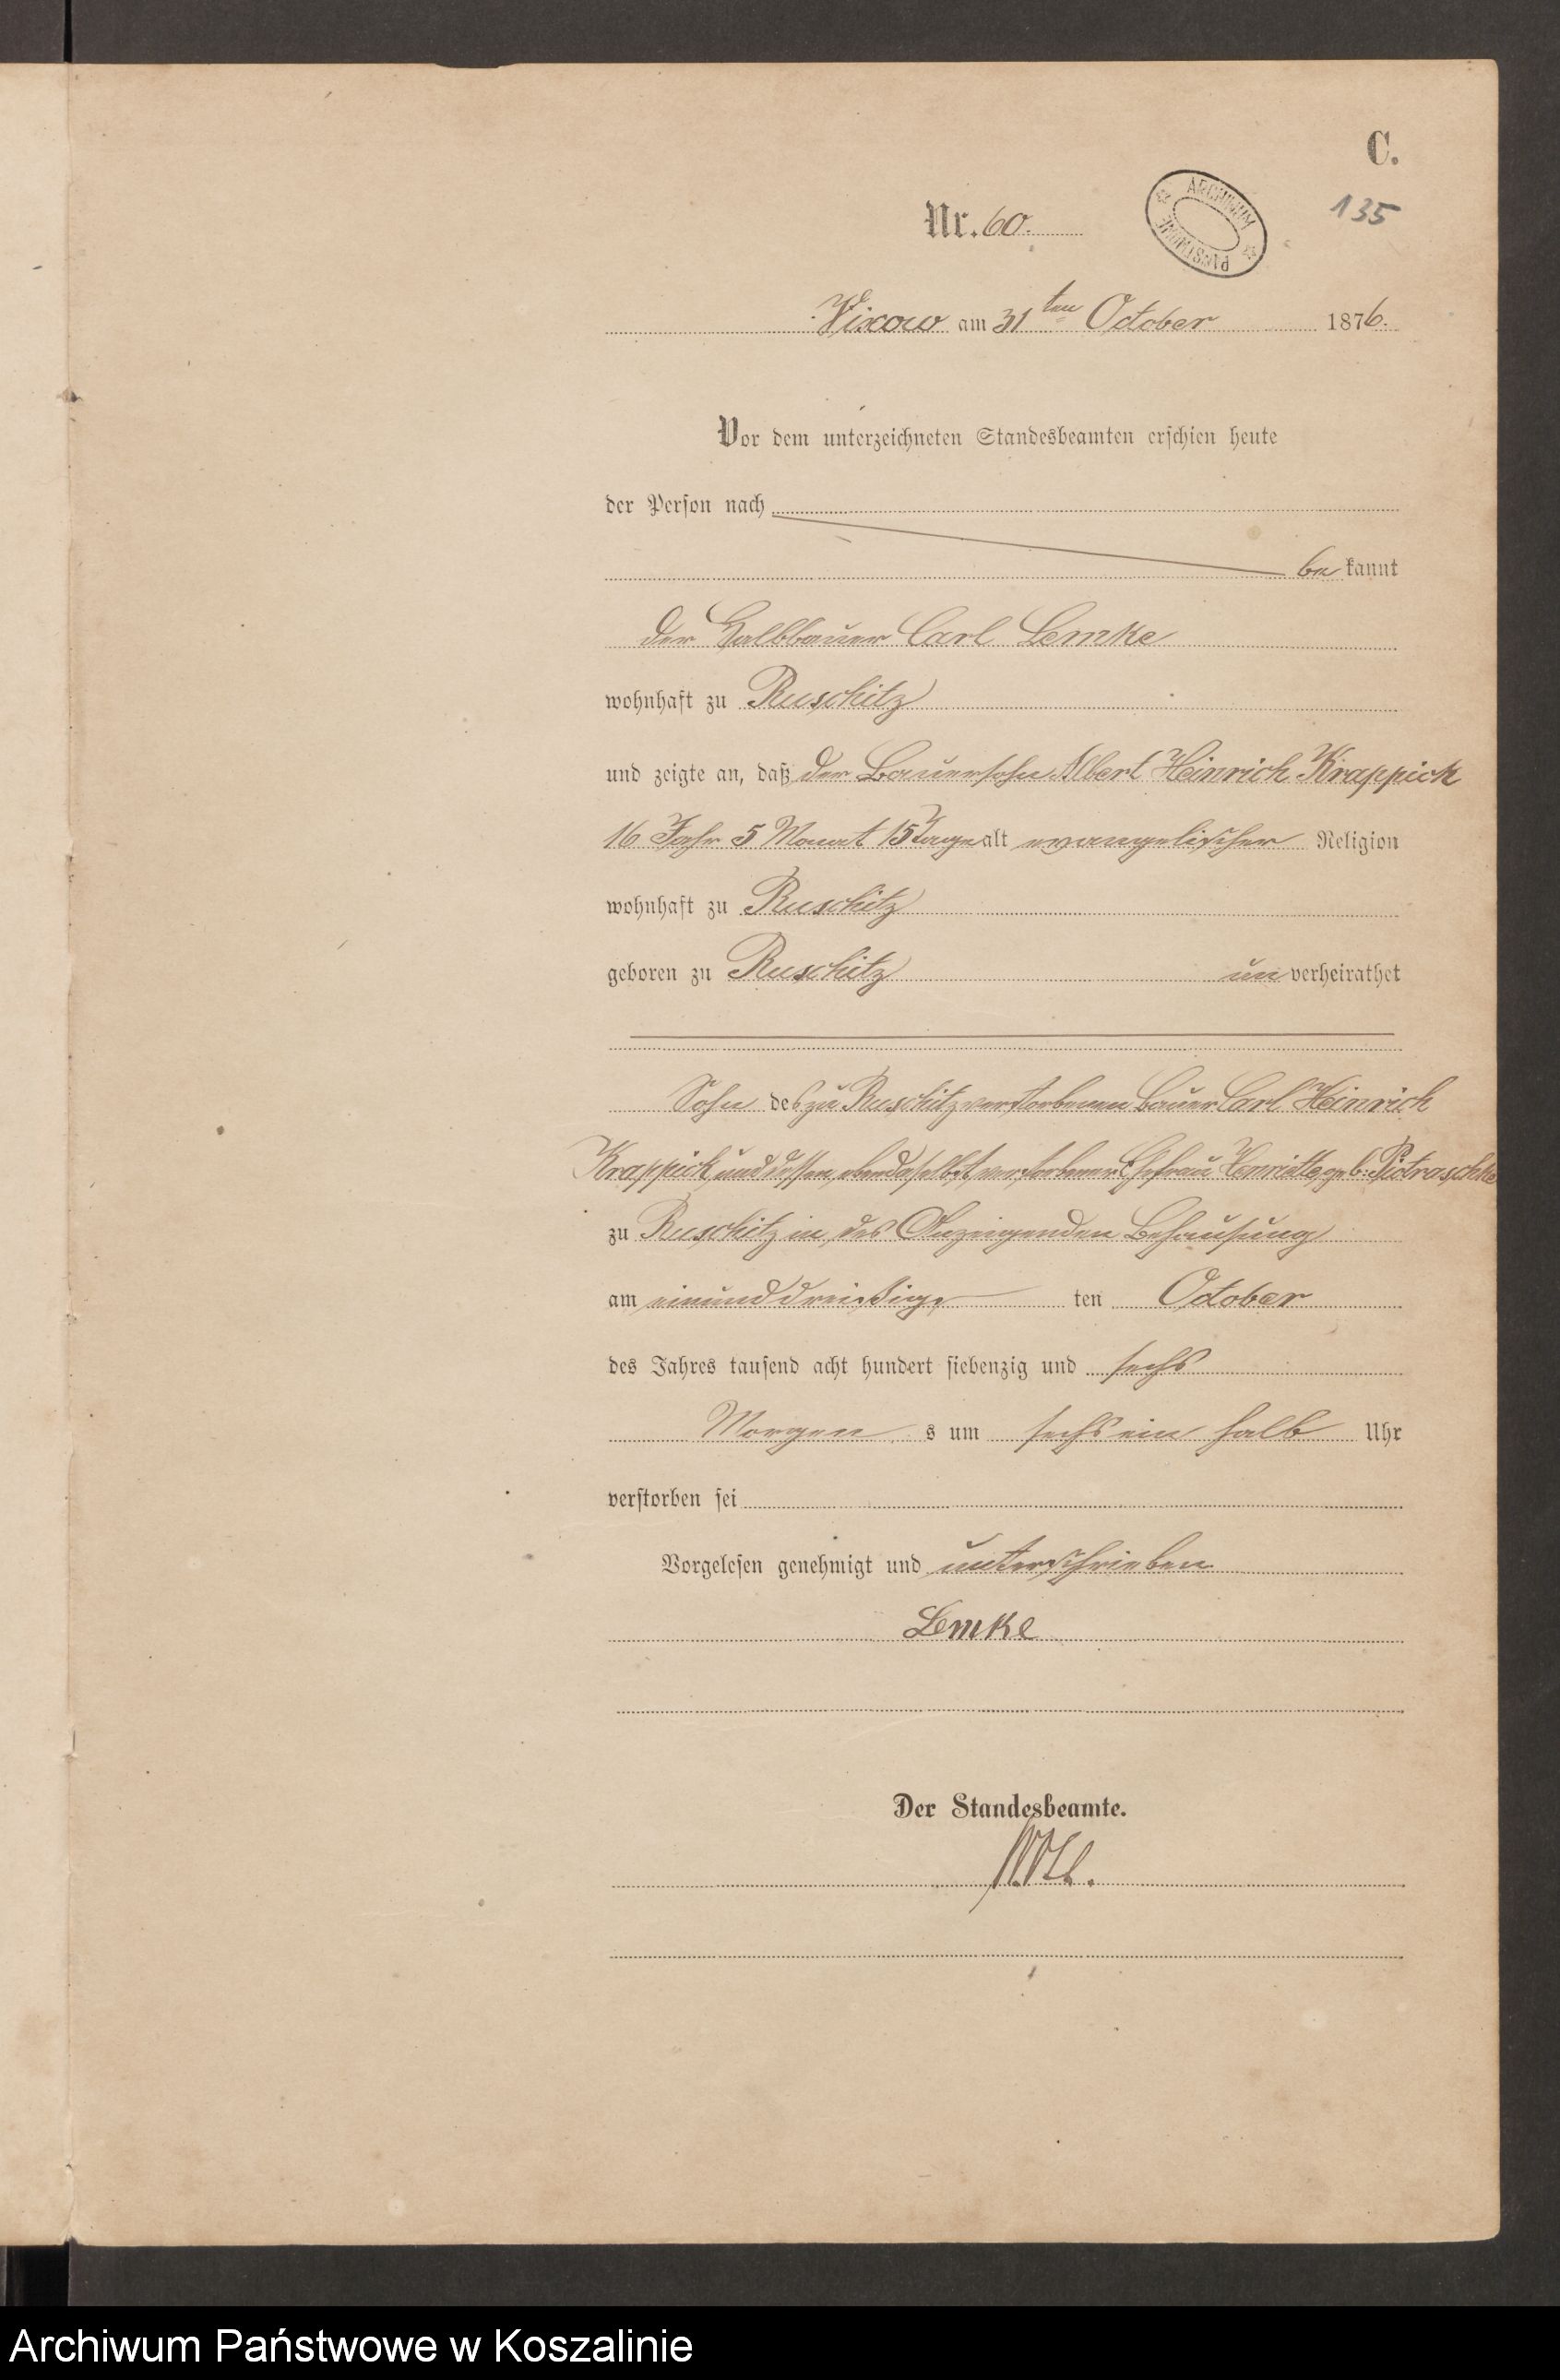 C.
135
Nr. 60.
ARCHIWUM PAŃSTWOWE
Vixow am 31ten October 1876.
Vor dem unterzeichneten Standesbeamten erschien heute
der Person nach
be kannt
der Halbbauer Carl Lemke
wohnhaft zu Ruschitz
und zeigte an, daß der Bauersohn Albert Heinrich Krappick
16 Jahr 5 Monat 15 Tage alt evangelischer Religion
wohnhaft zu Ruschitz
geboren zu Ruschitz un verheirathet
Sohn des zu Ruschitz verstorbenen Bauer Carl Heinrich
Krappick und dessen ebendaselbst verstorbener Ehefrau Henriette geb. Pietraschke
zu Ruschitz in des Anzeigenden Behausung
am einunddreißigs ten October
des Jahres tausend acht hundert siebenzig und sechs
Morgen s um sechs ein halb Uhr
verstorben sei
Vorgelesen genehmigt und unterschrieben
Lemke
Der Standesbeamte.
Archiwum Państwowe w Koszalinie